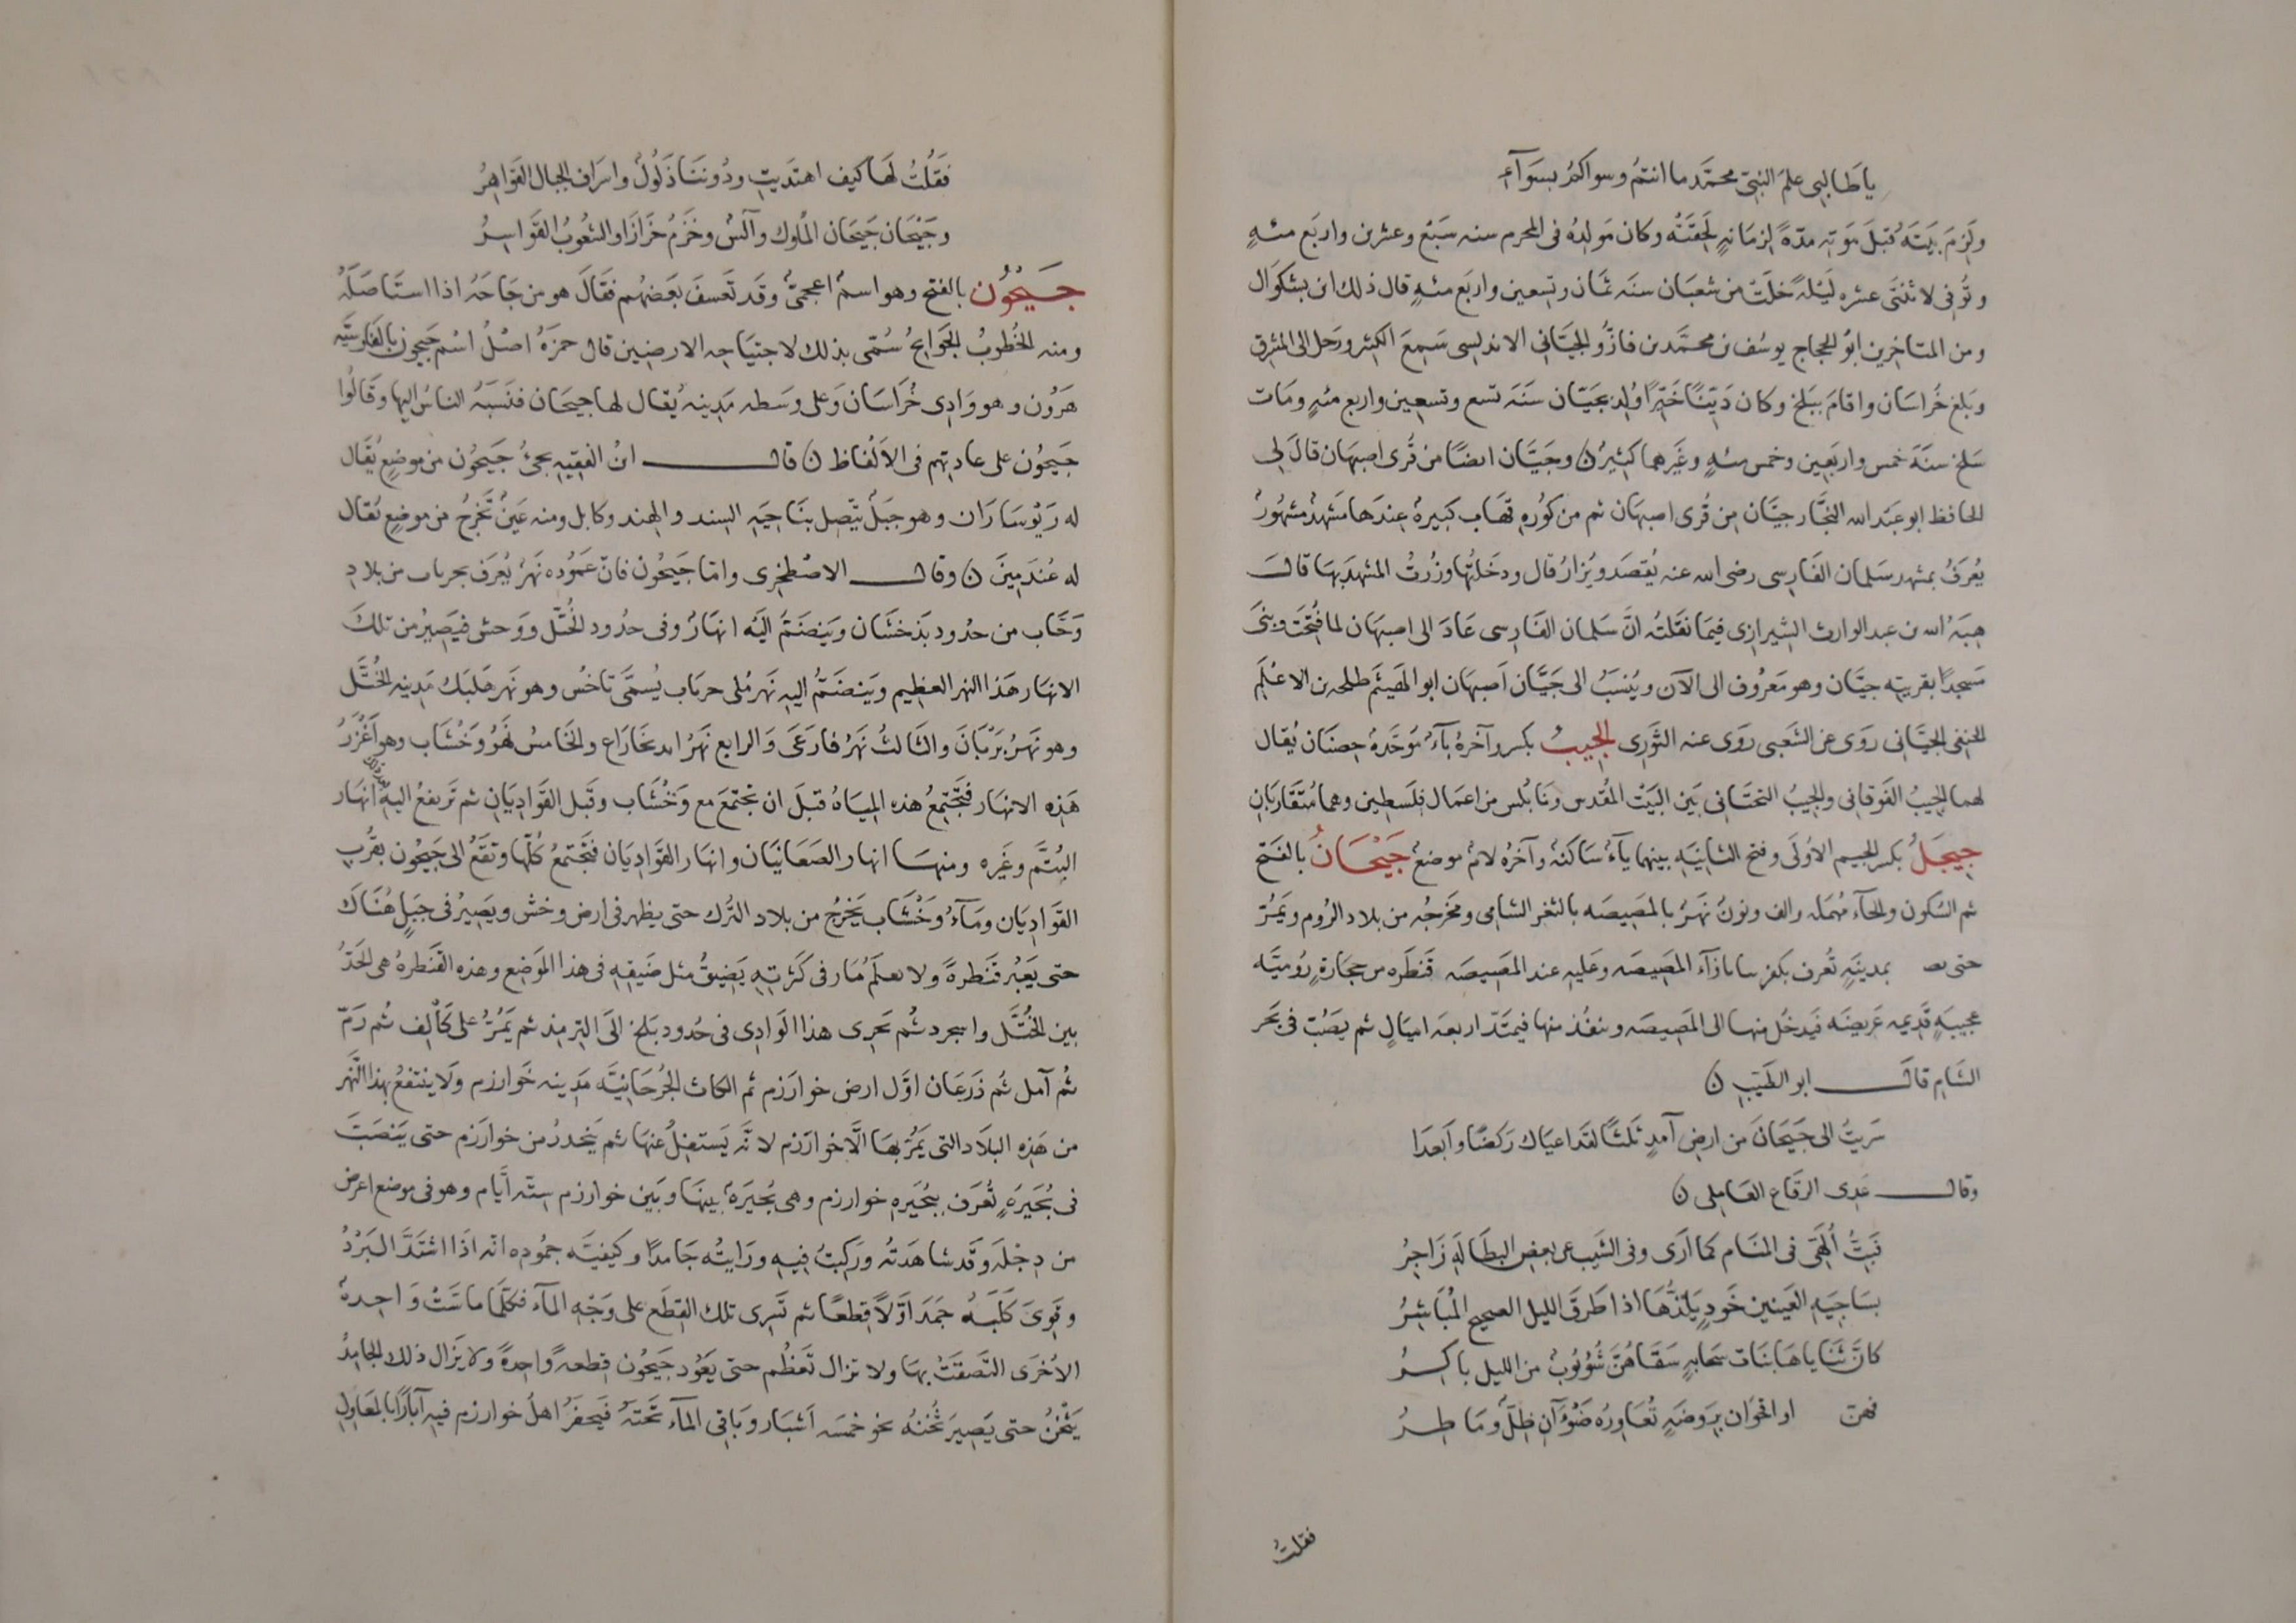 يا طالبى علم النبىّ محمّد ما انتمُ وسواكمُ بسَوآء
ولَزِمَ بَيتَهُ قبلَ مَوته مدّةً لِزمَانةٍ لَحِقَتْهُ وكان مَولدُهُ فى المحرم سنه سَبْع وعشرين واربَع مئهٍ
وتُوفى لاثنتى عشره لَيْلَةً خلَت من شعبَان سنَه ثمَان وتسعين واربَع مئهٍ قال ذلك ابن بشكوَال
ومن المتاخرين ابوُ الحجاج يوسُف بن محمَّد بن فازُّو الجيَّانى الاندلسى سَمِعَ الكثير ورَحل الى المشرق
وبَلغ خُراسَان واقامَ ببَلخ وكان دَيّنًا خَيّرًا وُلِد بجَيّان سَنَة تسع وتسعين واربع مئهٍ ومَات
سَلخ سنَة خمس واربَعين وخمس مئهٍ وغَيرهما كثيرٌ ن وجَيَّان ايضًا من قُرى اصبهَان قالَ لى
الحافظ ابو عبَد الله النجَّار جيَّان مِن قُرى اصبهَان ثم من كوُره قهَاب كبيرة عِندَها مَشهدٌ مشهُورٌ
يُعرَفُ بمشهد سَلمان الفَارِسى رضى الله عنه يُقصَد ويُزارُ قال ودخَلتُها وزُرتُ المشهدَ بهَا قالــ
هِبَةُ الله بن عبد الوارث الشيرازى فيمَا نقَلتُه انَّ سَلمان الفَارِسى عَادَ الى اصبهَان لما فُتِحَت وبَنَى
مَسجدًا بقريته جيَّان وهو مَعرُوف الى الآن ويُنسَبُ الى جَيَّان اَصبهَان ابو الهَيثَم طلحه بن الاعلم
الحنفى الجيَّانى روَى عن الشَعبى روَى عنه الثَورى الجِيبُ بكسر وآخرهُ بآءٌ مُوَحَّدةٌ حِصنَان يُقال
لهما الجيبُ الفَوقانى والجيبُ التحتَانى بَين البَيت المُقدس ونَابلس من اعمَال فِلَسطين وهمَا مُتَقَاربَانِ
جِيجَلُ بكسر الجيم الاوُلَى وفتح الثانيَه بينهما يآءٌ سَاكنهٌ وآخرُه لامٌ موضعٌ جَيْحَانُ بالفَتح
ثم السُكون والحآءُ مُهمَله والف ونونٌ نَهرٌ بالمَصِيصَه بالثغر الشامى ومخرجُه من بلاد الرُوم ويَمُرّ
حتى بمدينَةٍ تُعرف بكفر بيا بازآء المَصِيصَه وعَليهِ عند المَصِيصَه قَنطَره من حجارةٍ رُوميَّه
عجيبَةٍ قَديمه عَريضَه فيَدخُل منها الى المَصِيصَه وينفُذ منها فيمتدّ اربعَه اميَالٍ ثم يصُبّ فى بَحر
الشَام قالــ ابو الطَيّب ن
سَريتُ الى جَيحَانَ من ارضِ آمدٍ ثلثًا لقَد اعيَاك رَكضًا وابعدَا
وقالــ عَدى الرقَاع العَامِلى ن
فبَتُّ اُلَهَّى فى المنَام كما ارَى وفى الشَيب عن بعض البطَالَةِ زَاجرُ
بسَاجيَةِ العَينين خَودٍ يَلذُّهَا اذا طَرقَ الليل الصحيح المُبَاشِرُ
كانَّ ثنَايَاهَا بنَات سَحابةٍ سَقَاهُنَّ شُؤبُوبٌ من الليل باكرُ
فهنّ اواقحوان برَوضَةٍ تُعَاورُه ضَوْآنِ طَلٌّ ومَاطِرُ
فقلتُ
فَقلُتُ لَهَا كيف اهتَديتِ ودُوننَا ذَلُوُكٌ واسرَاف الجبال القَواهِرُ
وجَيحَان جَيحَان المُلوك وآلسٌ وخَزمُ خَزازَا والشعُوبُ القَواسِرُ
جَيحُوُن بالفتح وهو اسمٌ اعجمىٌّ وقَد تَعسفَ بعَضهُم فقَالَ هو من جَاحَهُ اذا استَاصَلَهُ
ومنه الخُطُوبُ الجَوايحُ سُمّى بذلك لاجتيَاحِه الارضِين قال حمزَةُ اصلُ اسْم جَيحون بالفارسيّه
هَرُون وهو وَادِى خُرَاسَان وَعلى وسَطه مَدِينه يُقال لها جيحَان فنَسَبَهُ الناسُ اليها وقَالُوا
جيحُون على عادتهم فى الاَلفَاظ ن قالــ ابنُ الفقيهِ يجئُ جَيحُون من موضِعٍ يُقَال
له رَيوسَارَان وهو جبَلٌ يتّصِل بنَاحِيَهِ السند والهند وكابل ومنه عَينٌ تخَرجُ من موضعٍ يُقال
له عُندَمِينَ ن وقالــ الاصْطَخرى وامّا جَيحُون فانّ عَمُوُده نَهرٌ يُعرَف بجرياب من بلادِ
وَخَّاب من حدُود بَذخشَان ويَنضَمّ اليَه انهَارٌ فى حدُود الخُتّل ووَخش فيَصِيرُ من تلكَ
الانهَار هَذا النهر العظيم ويَنضَمُّ اليهِ نَهرٌ مُلى حرياب يُسمَّى تاخُس وهو نَهر هَلبَك مَدينه الخُتَّل
وهو نَهرُ بَرْبَانَ والثَالثُ نَهرُ فارعَى وَالرابع نَهرُ اندَيخَارَاع والخَامسُ نَهرُ وَخشَاب وهو اَغْزَرُ
هَذِه الانهَار فتَجتِمعُ هذه الميَاهُ قبلَ ان تجتمَع مع وَخْشَاب وقَبل القَوادِيَانِ ثم تَرتفعُ اليهِ انهَار
البُتَّم وغَيره ومنهَا انهار الصَغَانيَان وانهَار القَوادِيَان فتَجتمعُ كُلّها وتقَعُ الى جَيحُون بقُربِ
القَوادِيَان ومَآءُ وَخْشَاب يَخرجُ من بلاد التُرك حتى يظهر فى ارض وخش ويصِيرُ فى جَبَلٍ هُنَاك
حتى يَعْبُر قَنطرةً ولا يعلَمُ مَار فى كَثرتِهِ يَضِيقُ مثل ضَيقِهِ فى هذا الموَضِع وهذه القَنطرهُ هى الحَدّ
بين الخُتَّل واسجرد ثُم يَجرى هذا الوَادِى فى حُدود بَلخ الَى الترمذ ثم يَمُرّ على كَالِف ثُم زَمّ
ثُم آمل ثُم ذَرعَان اوَّل ارض خوارَزم ثم الكاث الجُرجَانيَّه مَدِينه خَوارزم ولَا ينتفعُ بهذا النَّهر
من هَذِه البلَاد التى يَمُرّ بهَا الّا خوارَزم لانّه يَستفلُ عنهَا ثم يَنحدرُ من خوارَزم حتى يَنصَبّ
فى بُحَيرَةٍ تُعرَف ببُحَيرهِ خوارزم وهى بُحَيرَة بينهَا وبَين خوارزم ستّه اَيَّام وهو فى موضعٍ اعرض
من دِجْلَه وقَد شاهَدتُه ورَكبتُ فِيهِ ورَايتُه جَامدًا وكيفيَّه جمُوده انّه اذَا اشتَدَّ البَرْدُ
وقَوِىَ كَلَبُه جمَدَ اوّلاً قِطعًا ثم تَسرى تلك القِطَع على وَجْهِ المآء فكلّمَا ماسّت وَاحِدةٌ
الاُخرَى التَصَقَتْ بهَا ولا تزال تَعظُم حتى يَعُود جَيحُون قِطعهً واحدةً ولا يَزال ذلك الجامِدُ
يَثْخُنُ حتى يَصِيرَ ثُخنُهُ نحو خمْسَه اَشبَار وبَاقى المآءِ تَحتَهُ فيَحفرُ اهلُ خوارزم فيهِ آبارًا بالمَعاولِ